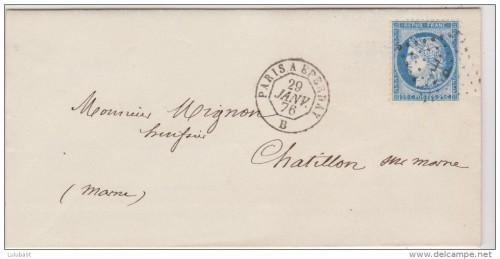 REPUB. FRANC.
25 C. POSTES 25 C.
PARIS A EPERNAY
29
JANV.
76
B
Monsieur Mignon
huissier
Chatillon sur marne
(marne)
Lulubast
delcampe.net